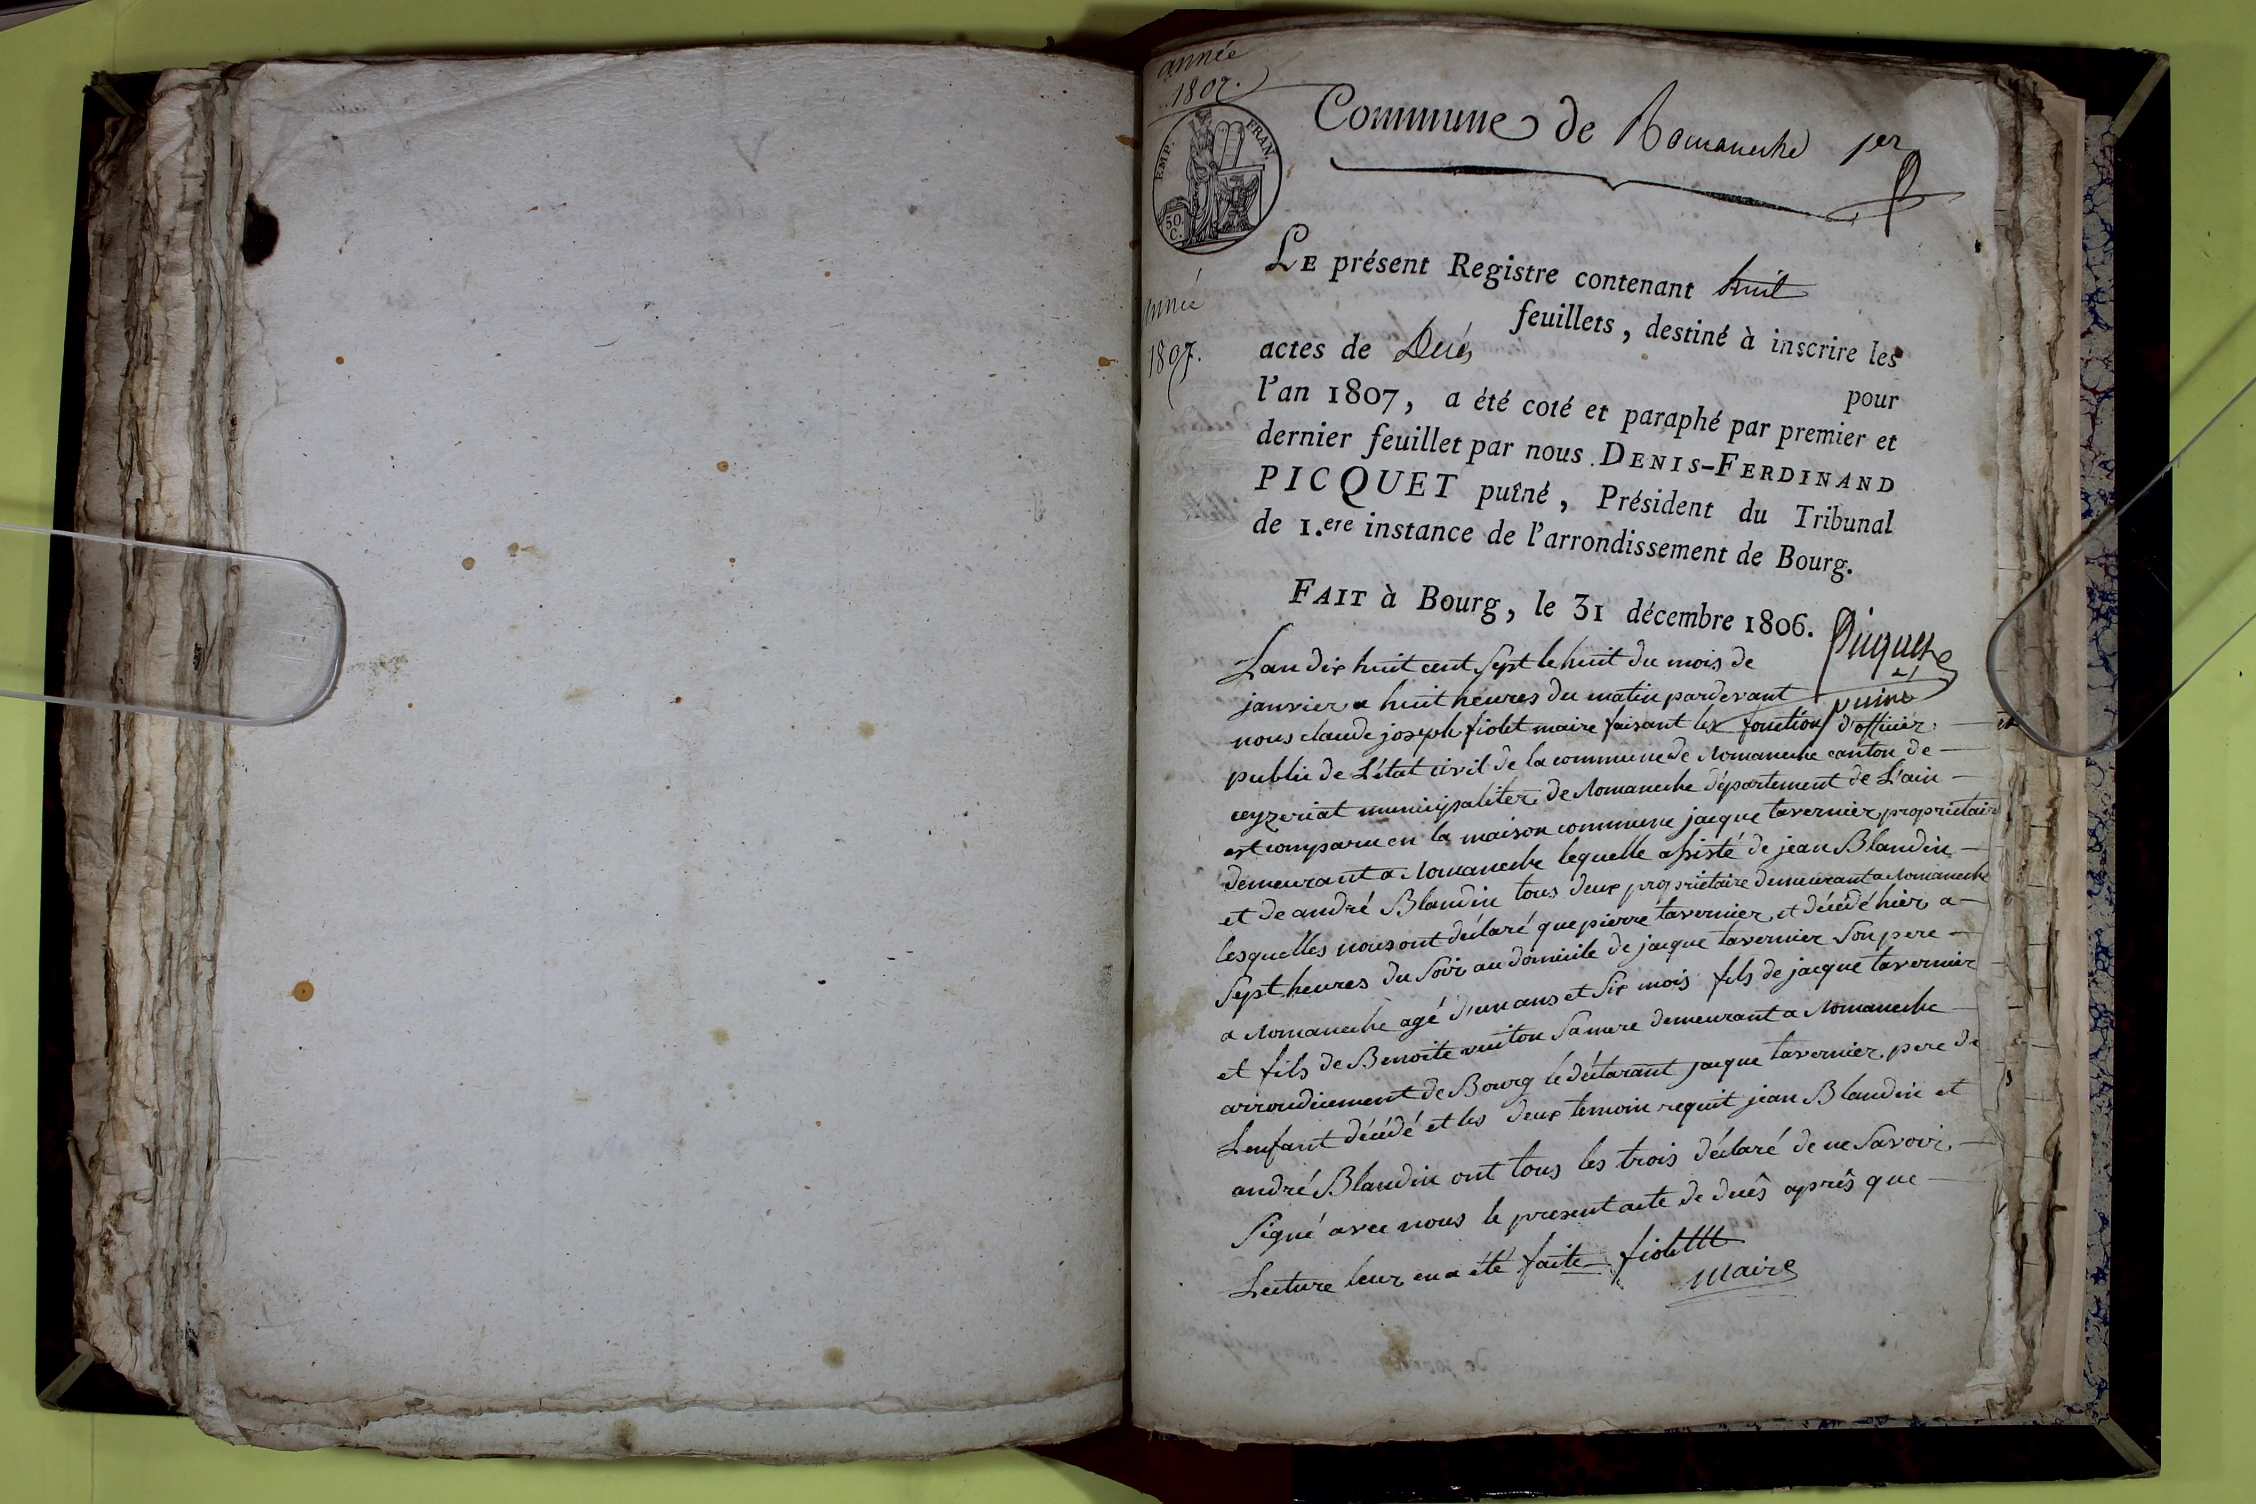 année
1807.
EMP. FRAN.
50.
C.
Commune de Romaneche 1er
LE présent Registre contenant huit
feuillets, destiné à inscrire les
année
1807.
actes de Decés
pour
l'an 1807, a été coté et paraphé par premier et
dernier feuillet par nous DENIS-FERDINAND
PICQUET puîné, Président du Tribunal
de 1.ere instance de l'arrondissement de Bourg.
FAIT à Bourg, le 31 décembre 1806.
Picquet
puiné
Lan dix huit cent Sept le huit du mois de
janvier a huit heures du matin pardevant
nous claude joseph fiolet maire faisant les fonction d'officier
public de L'état civil de la commune de Romaneche canton de
ceyzeriat municipaliter de Romaneche département de L'ain
est comparu en la maison commune jacque tavernier proprietaire
demeurant a Romaneche lequelle assisté de jean Blandin
et de andré Blandin tous deux proprietaire demeurant a Romaneche
lesquelles nous ont déclaré que pierre tavernier et décédé hier a
Sept heures du Soir au domicile de jacque tavernier Son pere
a Romaneche agé d'un ans et Six mois fils de jacque tavernier
et fils de Benoite vuiton Sa mere demeurant a Romaneche
arrondicement de Bourg le déclarant jacque tavernier pere de
Lenfant décédé et les deux temoin requit jean Blandin et
andré Blandin ont tous les trois déclaré de ne Savoir
Signé avec nous le present acte de decês aprês que
Lecture leur en a été faite fiolet
maire